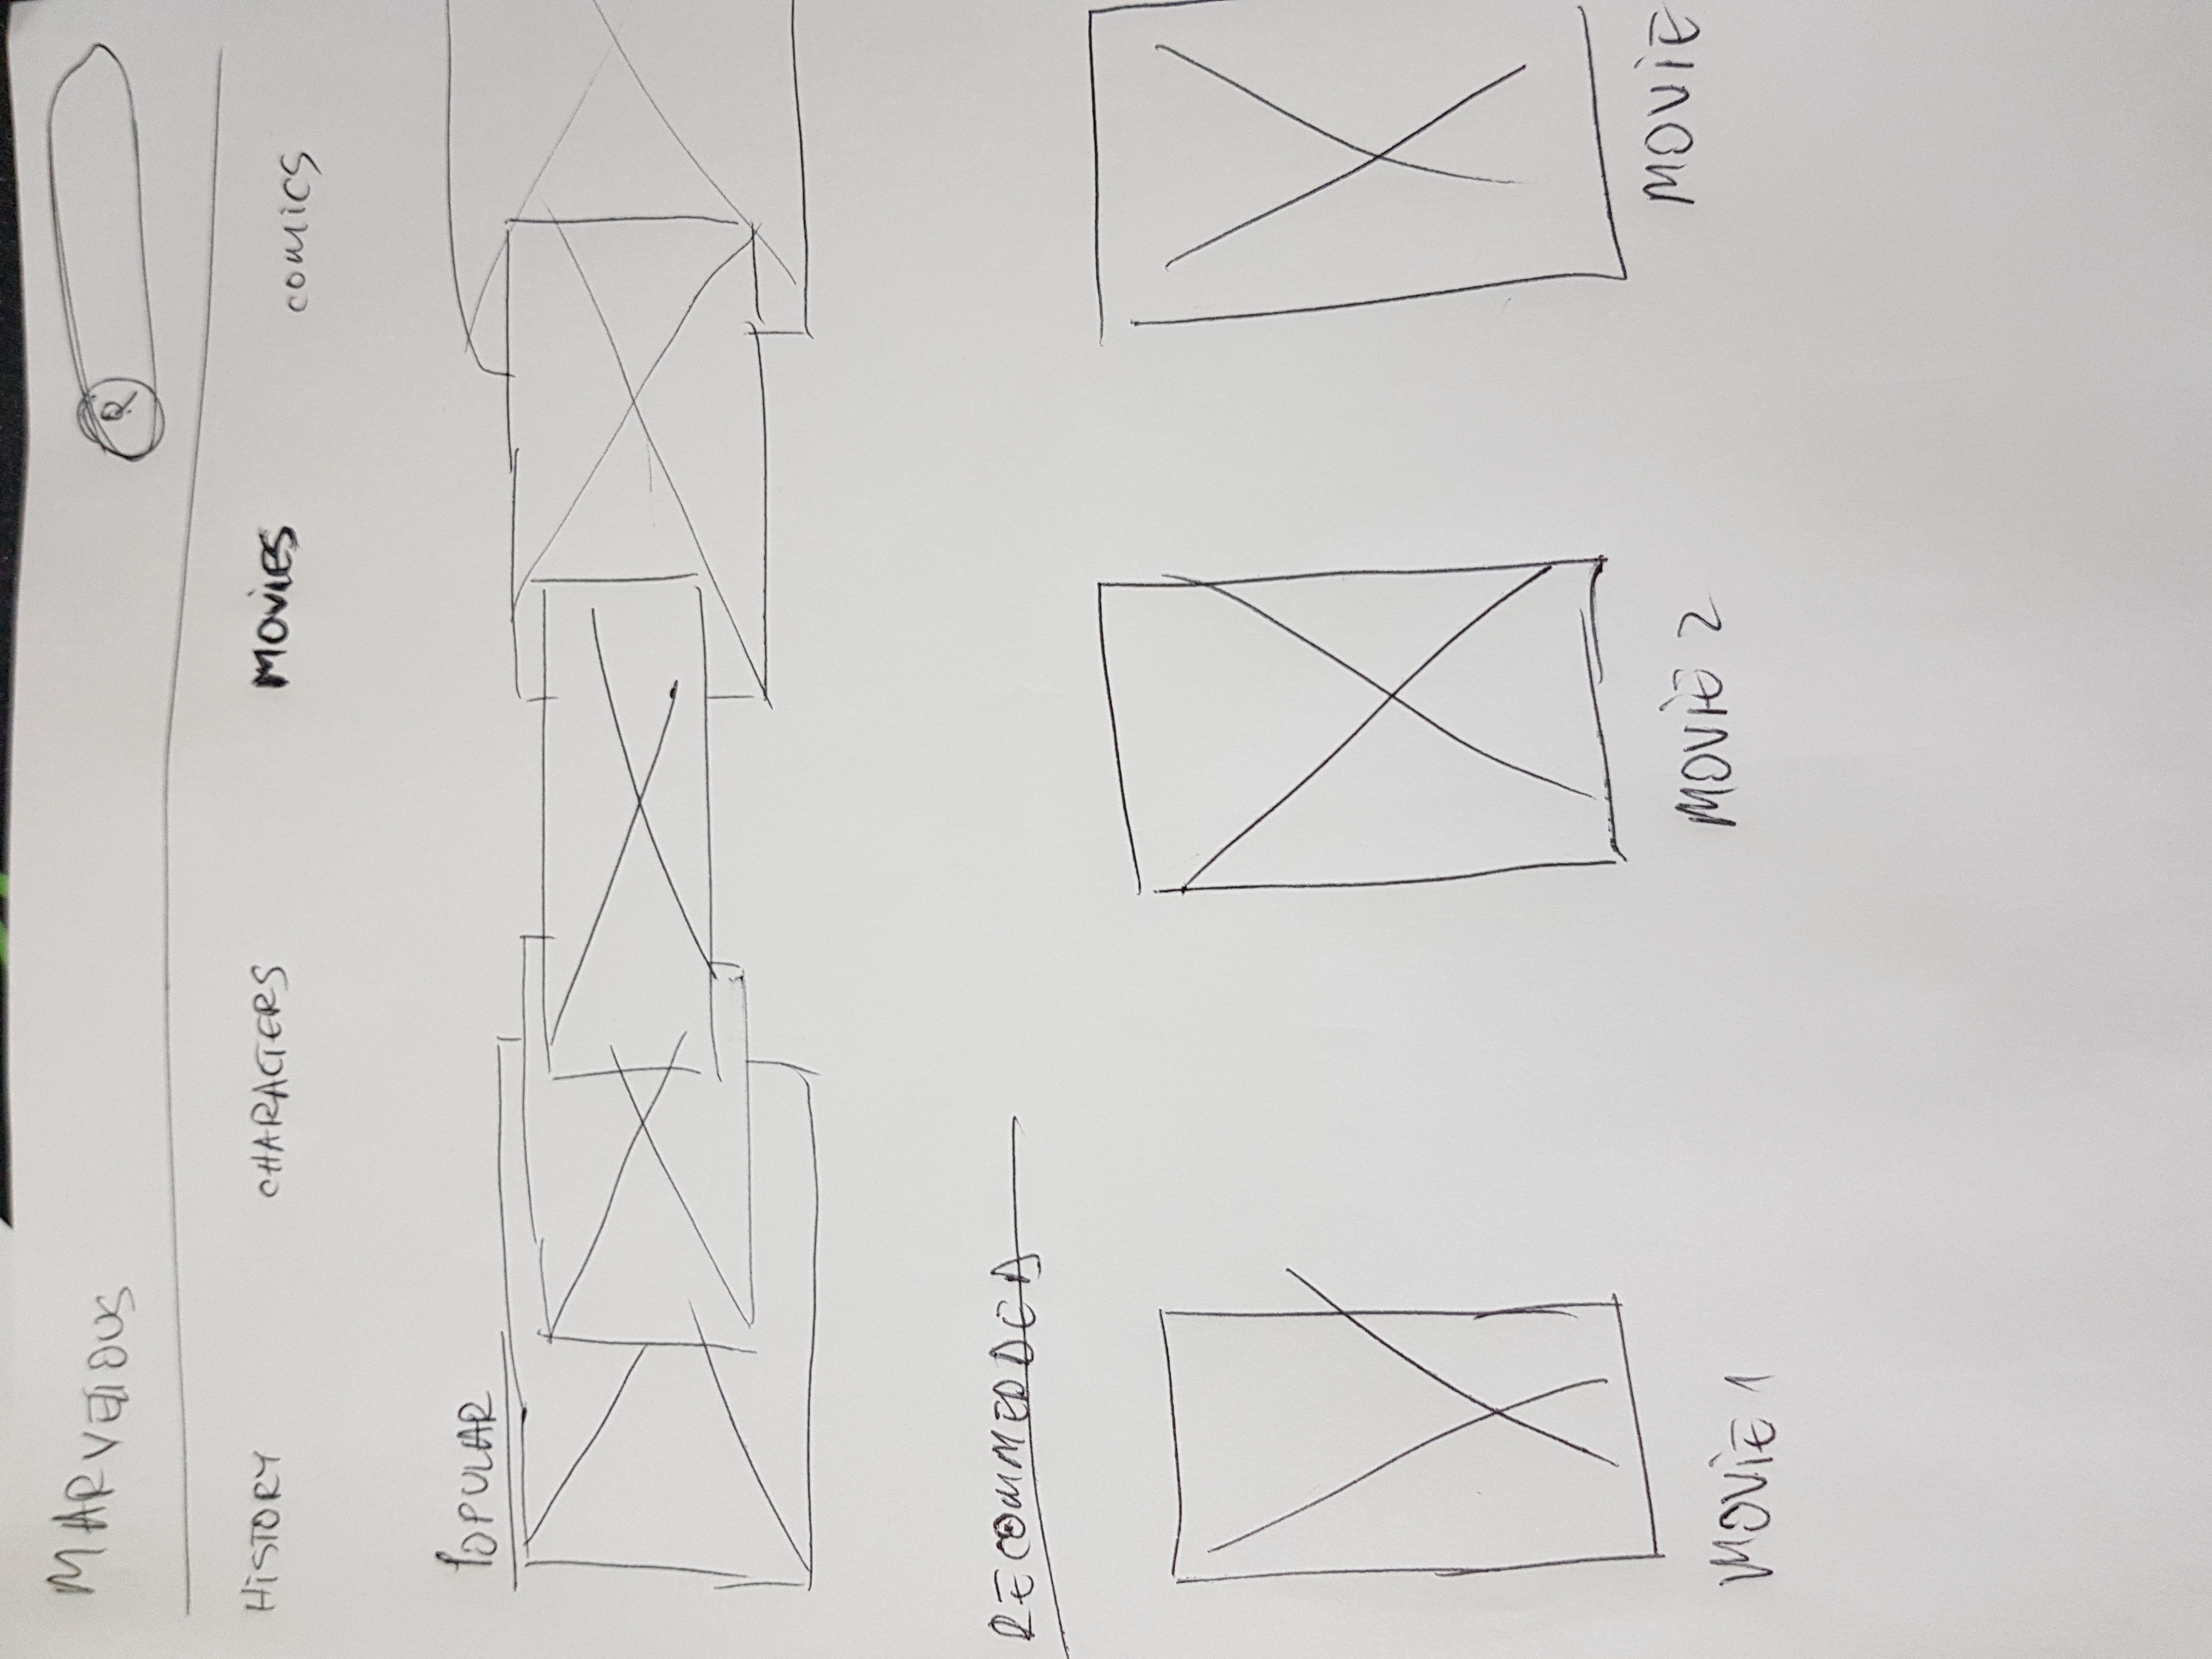 MARVELLOUS
HISTORY CHARACTERS MOVIES COMICS
POPULAR
RECOMMEDDED
MOVIE 1 MOVIE 2 MOVIE